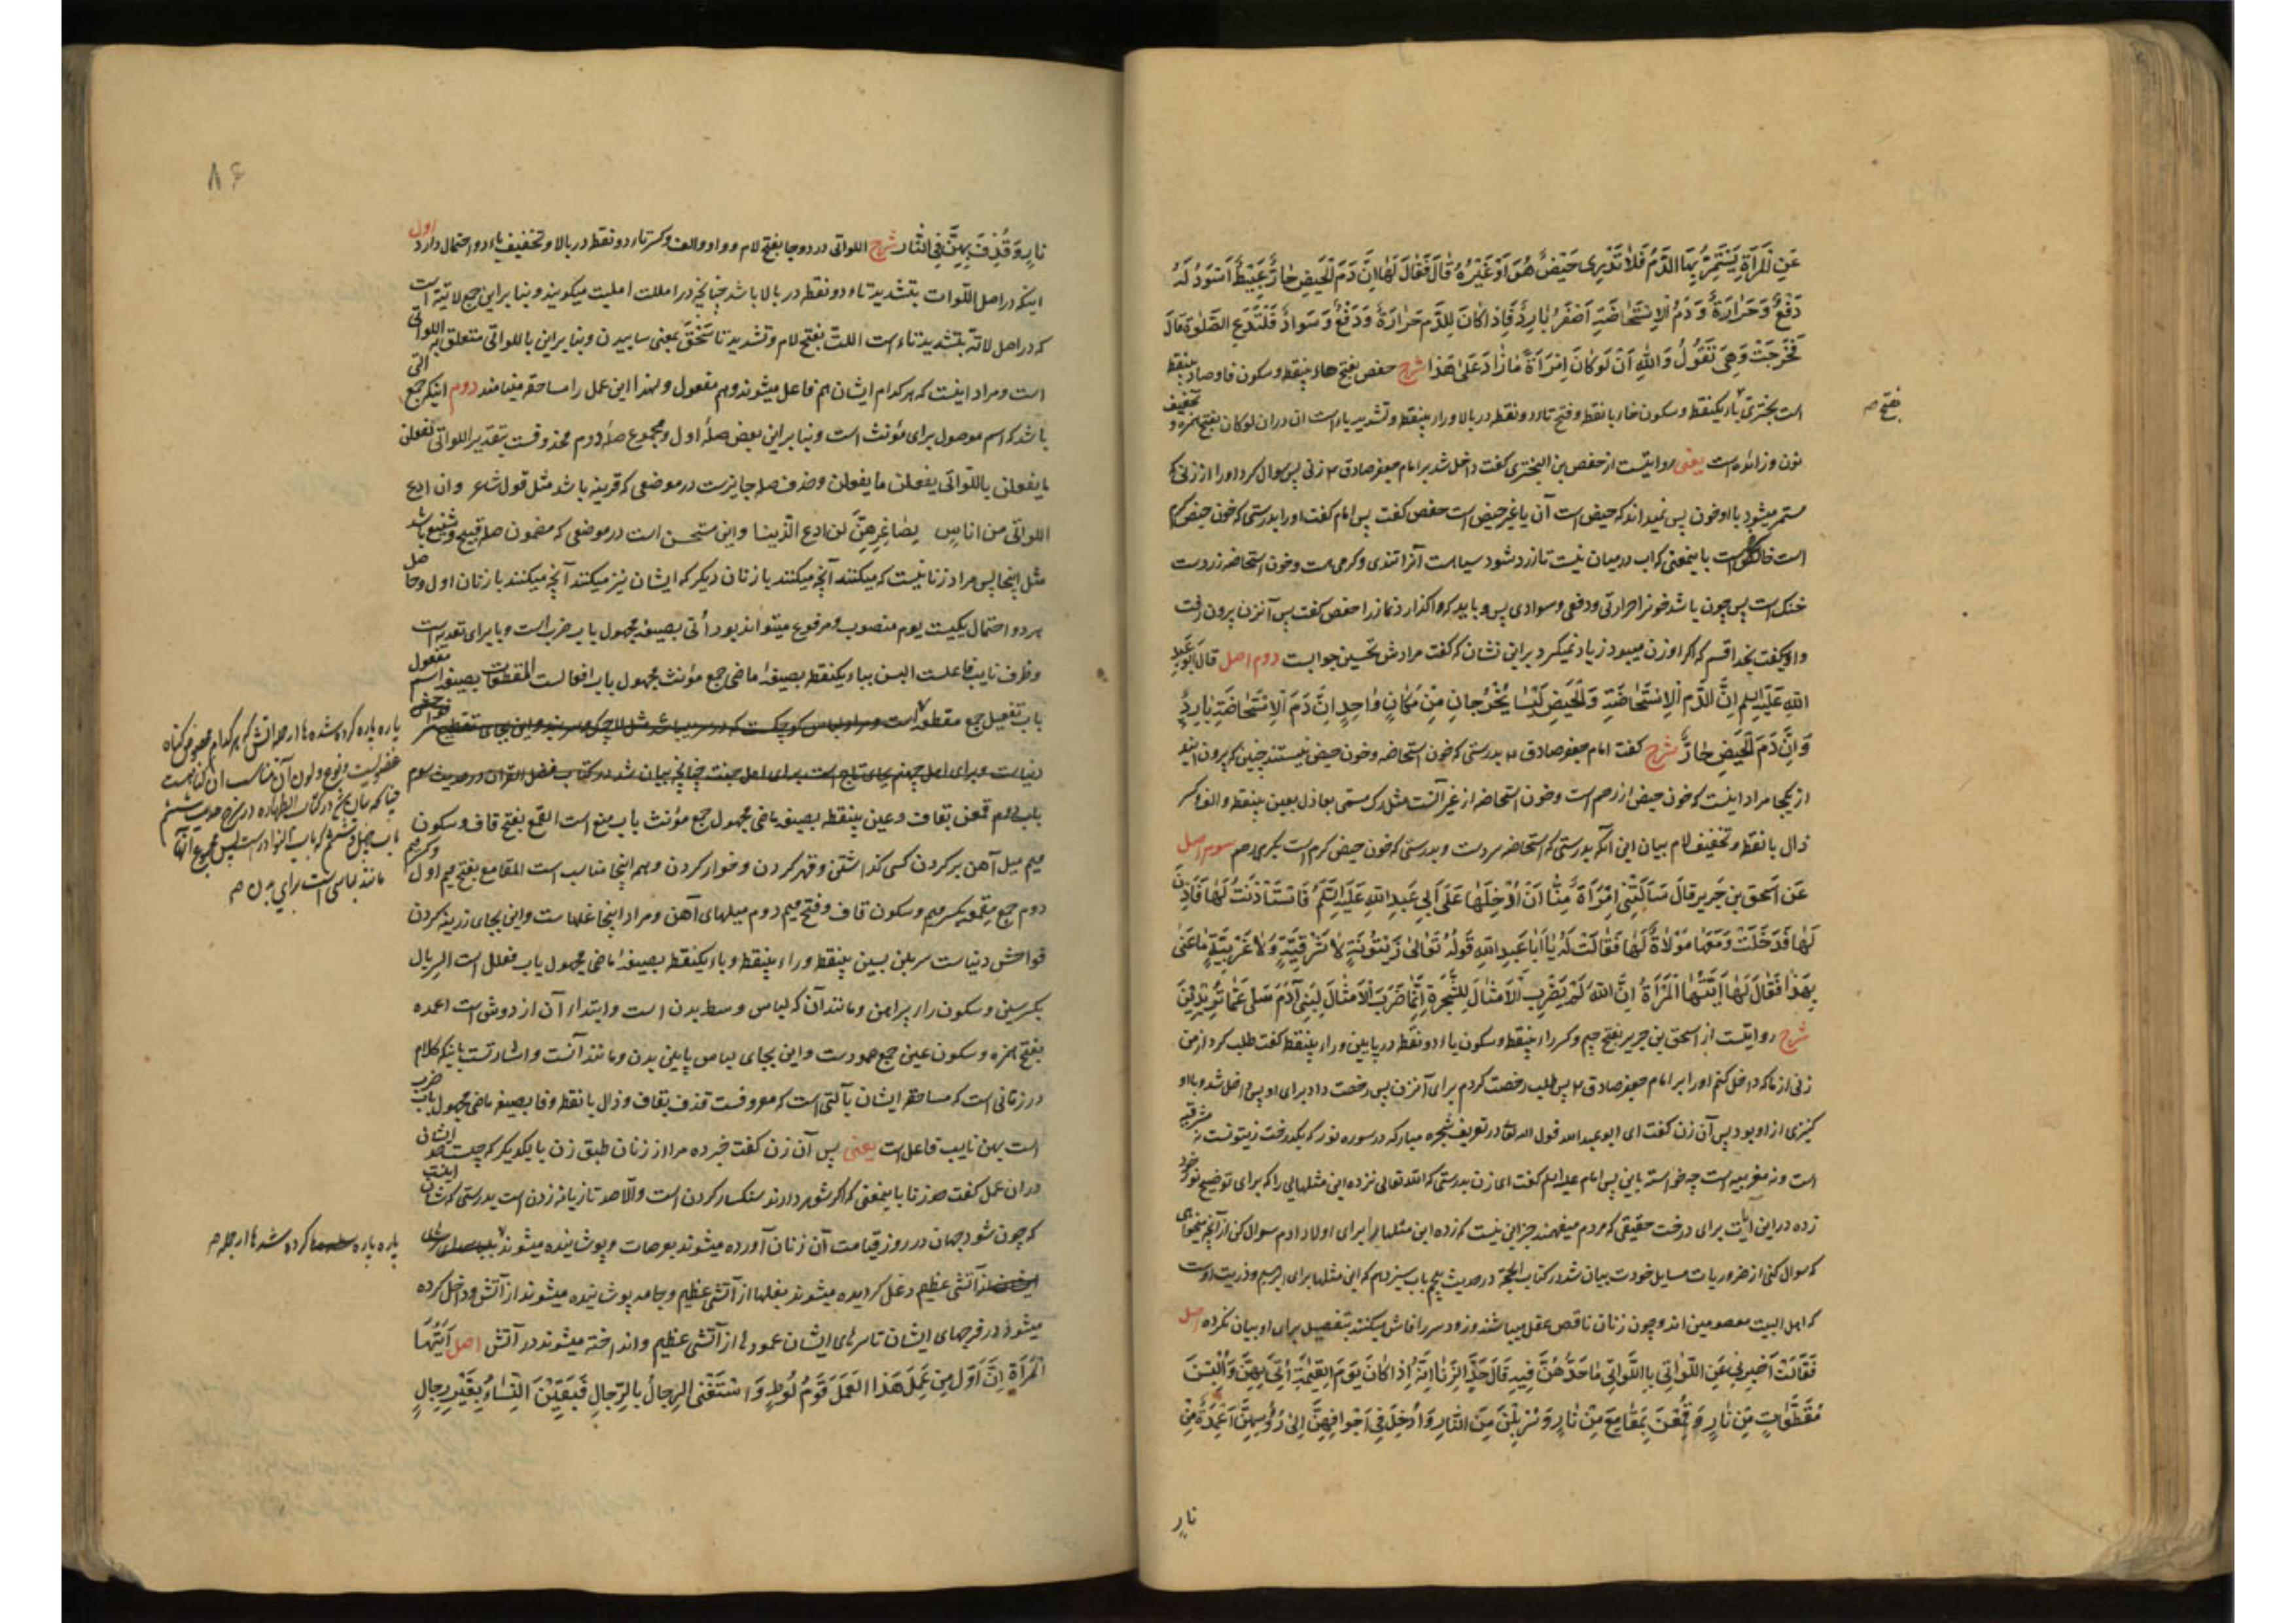 عَنِ الْمَرْأَةِ يَسْتَمِرُّ بِهَا الدَّمُ فَلَا تَدْرِي حَيْضٌ هُوَ أَوْ غَيْرُهُ قَالَ فَقَالَ لَهَا إِنَّ دَمَ الْحَيْضِ حَارٌّ عَبِيطٌ أَسْوَدُ لَهُ
دَفْعٌ وَحَرَارَةٌ وَدَمُ الْاِسْتِحَاضَةِ أَصْفَرُ بَارِدٌ فَإِذَا كَانَ لِلدَّمِ حَرَارَةٌ وَدَفْعٌ وَسَوَادٌ فَلْتَدَعِ الصَّلوٰةَ قَالَ
فَخَرَجَتْ وَهِيَ تَقُولُ وَاللّٰهِ أَنْ لَوْ كَانَ امْرَأَةً مَا زَادَ عَلَى هَذَا شرح حفص بفتح حاء بینقطه و سکون فا و صاد بینقطه
است بختری باء یکنقطه و سکون خاء با نقطه و فتح تاء دو نقطه در بالا و راء بینقطه و تشدید یاء است ان در ان لو کان بفتح همزه و تخفیف
نون و زائده است یعنی روایتست از حفص بن البختری کفت داخل شد بر امام جعفر صادق ۴ زنی پس سوال کرد او را از زنی که
مستمر میشود با او خون پس نمیداند که حیض است آن یا غیر حیض است حفص کفت پس امام کفت او را بدرستی که خون حیض کرم
است باینمعنی که اب در میان نیست تا زرد شود سیاه است آنرا تندی و کرمی هست و خون استحاضه زردست
خنک است پس چون باشد خونرا حرارتی و دفعی و سوادی پس باید که واکذارد نماز را حفص کفت پس آنزن بیرون رفت
و او میکفت بخدا قسم که اگر او زن میبود زیاد نمیکرد بر این نشان که کفت مرادش تحسین جوابست دوم اصل قَالَ أَبُو عَبْدِ
اللّٰهِ عَلَيْهِ السَّلَمُ إِنَّ الدَّمَ الْاِسْتِحَاضَةِ وَالْحَيْضِ لَيْسَا يَخْرُجَانِ مِنْ مَكَانٍ وَاحِدٍ إِنَّ دَمَ الْاِسْتِحَاضَةِ بَارِدٌ
وَإِنَّ دَمَ الْحَيْضِ حَارٌّ شرح کفت امام جعفر صادق ۴ بدرستی که خون استحاضه و خون حیض نیستند چنین که بیرون ایند
از یکجا مراد اینست که خون حیض از رحم است و خون استحاضه از غیر آنست مثل رک مسمی بعاذل بعین بینقطه و الف و کسر
ذال با نقطه و تخفیف لام بیان این آنکه بدرستی که استحاضه سردست و بدرستی که خون حیض کرم است بکرمی رحم سوم اصل
عَنْ إِسْحٰقَ بْنِ جَرِيرٍ قَالَ سَأَلَتْنِي امْرَأَةٌ مِنَّا أَنْ أُدْخِلَهَا عَلَى أَبِي عَبْدِ اللّٰهِ عَلَيْهِ السَّلَمُ فَاسْتَأْذَنْتُ لَهَا فَأَذِنَ
لَهَا فَدَخَلَتْ وَمَعَهَا مَوْلَاةٌ لَهَا فَقَالَتْ لَهُ يَا أَبَا عَبْدِ اللّٰهِ قَوْلُهُ تَعَالَى زَيْتُونَةٍ لَا شَرْقِيَّةٍ وَلَا غَرْبِيَّةٍ مَا عَنَى
بِهَذَا فَقَالَ لَهَا أَيَّتُهَا الْمَرْأَةُ إِنَّ اللّٰهَ لَمْ يَضْرِبِ الْأَمْثَالَ لِلشَّجَرَةِ إِنَّمَا ضَرَبَ الْأَمْثَالَ لِبَنِي آدَمَ سَلِي عَمَّا تُرِيدِينَ
شرح روایتست از اسحق بن جریر بفتح جیم و کسر راء بینقطه و سکون یاء دو نقطه در پایین و راء بینقطه کفت طلب کرد از من
زنی از ما که داخل کنم او را بر امام جعفر صادق ۴ پس طلب رخصت کردم برای آنزن پس رخصت داد برای او پس داخل شد و با او
کنیزی از او بود پس آن زن کفت ای ابو عبد الله قول الله تعالی در تعریف شجره مبارکه در سوره نور که یکدرخت زیتونست نه مشرقیه
است و نه مغربیه است چه خواسته باین پس امام علیه السلم کفت ای زن بدرستی که الله تعالی نزده این مثلهایی را که برای توضیح نور خود
زده در این آیات برای درخت حقیقی که مردم میفهمند جز این نیست که زده این مثلها را برای اولاد ادم سوال کن از آنچه میخواهی
که سوال کنی از ضروریات مسایل خودت بیان شد در کتاب الحجة در حدیث پنجم باب سیزدهم که این مثلها برای ابرهیم و ذریت اوست
که اهل البیت معصومین اند و چون زنان ناقص عقل میباشند و زود سر را فاش میکنند بتفصیل برای او بیان نکرده اصل
فَقَالَتْ أَخْبِرْنِي عَنِ اللَّوَاتِي بِاللَّوَاتِي مَا حَدُّهُنَّ فِيهِ قَالَ حَدُّ الزِّنَا إِنَّهُ إِذَا كَانَ يَوْمَ الْقِيٰمَةِ أُتِيَ بِهِنَّ وَأُلْبِسْنَ
مُقَطَّعَاتٍ مِنْ نَارٍ وَقُمِعْنَ بِمَقَامِعَ مِنْ نَارٍ وَسُرْبِلْنَ مِنَ النَّارِ وَأُدْخِلَ فِي أَجْوَافِهِنَّ إِلَى رُؤُسِهِنَّ أَعْمِدَةٌ مِنْ
نارٍ
بفتح صح
۸۶
نَارٍ وَقُذِفَ بِهِنَّ فِي النَّارِ شرح اللواتی در دو جا بفتح لام و واو و الف و کسر تاء دو نقطه در بالا و تخفیف یاء دو احتمال دارد اول
اینکه در اصل اللوات بتشدید تاء دو نقطه در بالا باشد چنانچه در امللت املیت میکویند و بنا بر این جمع لاتیة است
که در اصل لاتة بتشدید تاء است اللت بفتح لام و تشدید تا سَحْق بمعنی ساییدن و بنا بر این باللواتی متعلق به اللواتی
است و مراد اینست که هر کدام ایشان هم فاعل میشوند و هم مفعول و لهذا این عمل را مساحقه مینامند دوم اینکه جمع التی
باشد که اسم موصول برای مؤنث است و بنا بر این بعض صلهٔ اول و مجموع صلهٔ دوم محذوفست بتقدیر اللواتی یفعلن
ما یفعلن باللواتی یفعلن ما یفعلن و حذف صله جایزست در موضعی که قرینه باشد مثل قول شاعر و ان ادع
اللواتی من اناس یضاغرهنّ لن ادع الذینا و این مستحسن است در موضعی که مضمون صله قبیح و شنیع باشد
مثل اینجا پس مراد زنانیست که میکنند آنچه میکنند با زنان دیکر که ایشان نیز میکنند آنچه میکنند با زنان اول و حاصل
هر دو احتمال یکیست یوم منصوب و مرفوع میتواند بود اُتی بصیغه مجهول باب ضرب است و با برای تعدیه است
و ظرف نایب فاعلست البسن بباء یکنقطه بصیغهٔ ماضی جمع مؤنث مجهول باب افعالست المقطعات بصیغه اسم مفعول
باب تفعیل جمع مقطعه است
باب دهم قمعن بقاف و عین بینقطه بصیغه ماضی مجهول جمع مؤنث باب منع است القمع بفتح قاف و سکون
میم میل آهن بر کردن کسی کذاشتن و قهر کردن و خوار کردن و همه اینجا مناسب است المقامع بفتح میم اول و کسر میم
دوم جمع مقمعه بکسر میم و سکون قاف و فتح میم دوم میلهای آهن و مراد اینجا غلهاست و این بجای زرینه کردن
فواحش دنیاست سربلن بسین بینقطه و راء بینقطه و باء یکنقطه بصیغهٔ ماضی مجهول باب فعلل است السربال
بکسر سین و سکون راء پیراهن و مانند آن که لباس وسط بدن است و ابتداء آن از دوش است اعمده
بفتح همزه و سکون عین جمع عمودست و این بجای لباس پایین بدن و مانند آنست و اشارتست باینکه کلام
در زنانی است که مساحقه ایشان بآلتی است که معروفست قذف بقاف و ذال با نقطه و فا بصیغه ماضی مجهول باب ضرب
است بهن نایب فاعل است یعنی پس آن زن کفت خبر ده مرا از زنان طبق زن با یکدیکر که چیست حد ایشان
در ان عمل کفت حد زنا باینمعنی که اگر شوهر دارند سنکسار کردن است و الّا صد تازیانه زدن است بدرستی که شان اینست
که چون شود جهان در روز قیامت آن زنان آورده میشوند بعرصات و پوشانیده میشوند
آتشی عظیم و غل کردیده میشوند بغلها از آتشی عظیم و جامه پوشانیده میشوند از آتش و داخل کرده
میشود در فرجهای ایشان تا سرهای ایشان عمودها از آتشی عظیم و انداخته میشوند در آتش اصل أَيَّتُهَا
الْمَرْأَةُ إِنَّ أَوَّلَ مَنْ عَمِلَ هَذَا الْعَمَلَ قَوْمُ لُوطٍ وَاسْتَغْنَى الرِّجَالُ بِالرِّجَالِ فَبَقِيْنَ النِّسَاءُ بِغَيْرِ رِجَالٍ
مانند لباسی است برای بدن صح